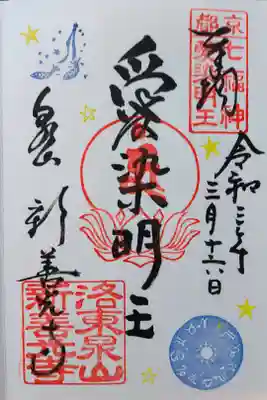 京七福神
都愛染明王
奉拝
令和三年
三月十六日
愛染明王
泉山 新善光寺
洛東泉山
新善光寺